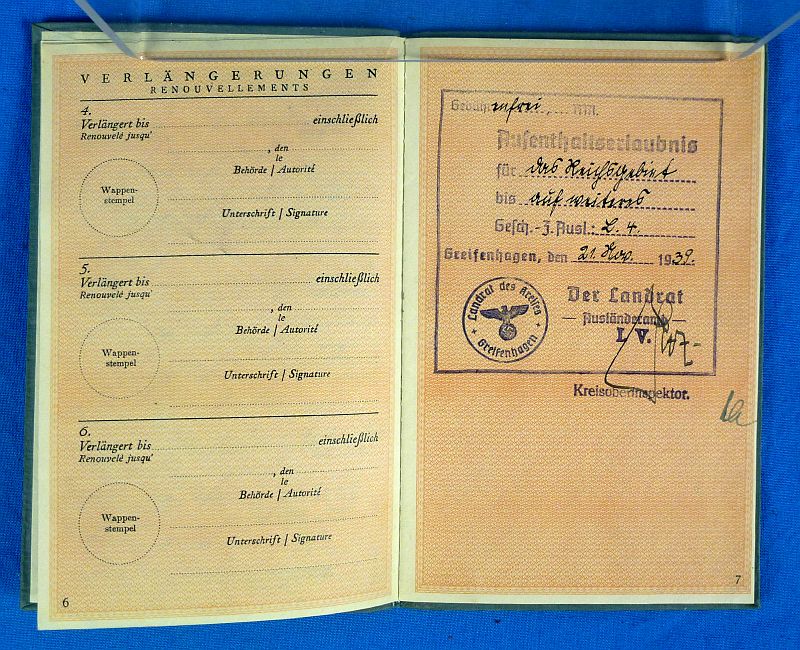 VERLÄNGERUNGEN
RENOUVELLEMENTS
4.
Verlängert bis einschließlich
Renouvelé jusqu'
, den
le
Behörde / Autorité
Wappen-
stempel
Unterschrift / Signature
5.
Verlängert bis einschließlich
Renouvelé jusqu'
, den
le
Behörde / Autorité
Wappen-
stempel
Unterschrift / Signature
6.
Verlängert bis einschließlich
Renouvelé jusqu'
, den
le
Behörde / Autorité
Wappen-
stempel
Unterschrift / Signature
6
Gebührenfrei, RM.
Aufenthaltserlaubnis
für das Reichsgebiet
bis auf weiteres
Gesch.-Z. Ausl.: L. 4.
Greifenhagen, den 21. Nov. 1939.
Landrat des Kreises
Greifenhagen
Der Landrat
— Ausländeramt —
I. V.
Kreisoberinspektor.
7